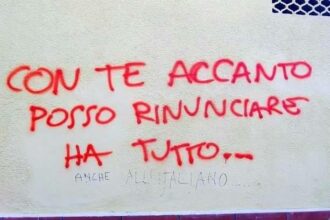 CON TE ACCANTO
POSSO RINUNCIARE
HA TUTTO....
ANCHE ALL'ITALIANO.....